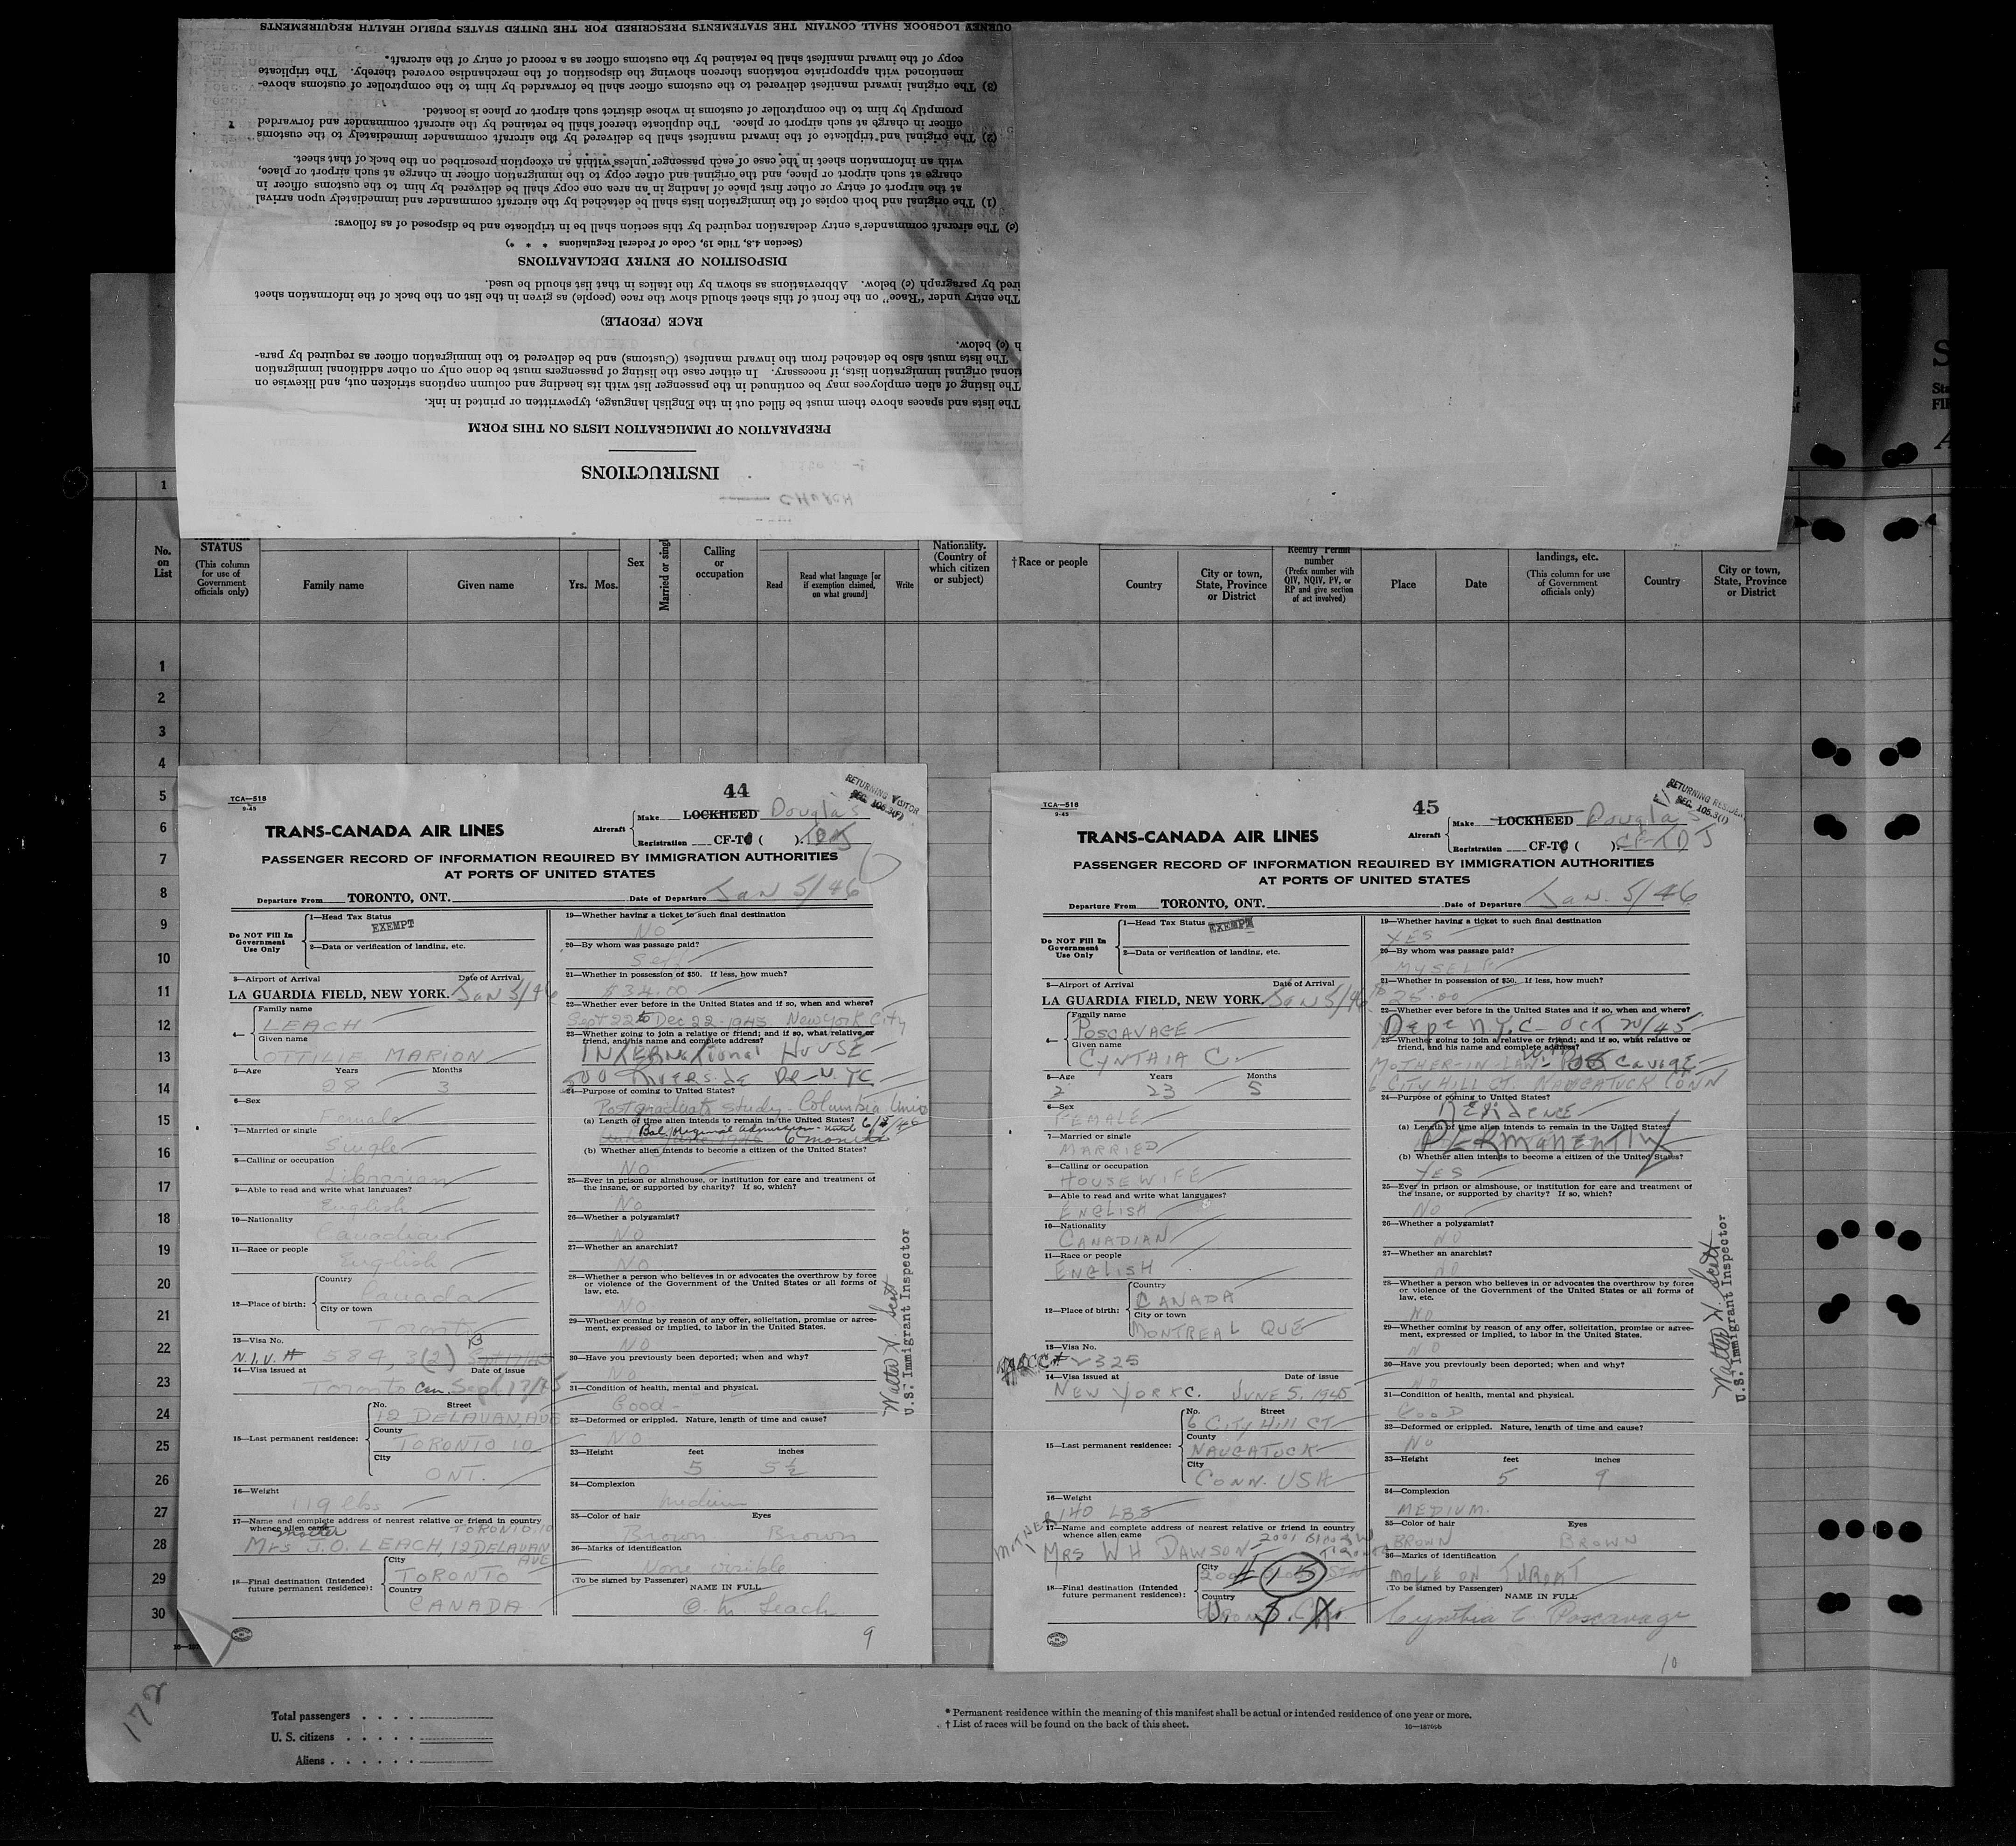 INSTRUCTIONS
PREPARATION OF IMMIGRATION LISTS ON THIS FORM
The lists and spaces above them must be filled out in the English language, typewritten or printed in ink.
The listing of alien employees may be continued in the passenger list with its heading and column captions stricken out, and likewise on
tional original immigration lists, if necessary. In either case the listing of passengers must be done only on other additional immigration
The lists must also be detached from the inward manifest (Customs) and be delivered to the immigration officer as required by para-
h (c) below.
RACE (PEOPLE)
The entry under "Race" on the front of this sheet should show the race (people) as given in the list on the back of the information sheet
ired by paragraph (c) below. Abbreviations as shown by the italics in that list should be used.
DISPOSITION OF ENTRY DECLARATIONS
(Section 4.8, Title 19, Code of Federal Regulations * * *)
(c) The aircraft commander's entry declaration required by this section shall be in triplicate and be disposed of as follows:
(1) The original and both copies of the immigration lists shall be detached by the aircraft commander and immediately upon arrival
at the airport of entry or other first place of landing in an area one copy shall be delivered by him to the customs officer in
charge at such airport or place, and the original and other copy to the immigration officer in charge at such airport or place,
with an information sheet in the case of each passenger unless within an exception prescribed on the back of that sheet.
(2) The original and triplicate of the inward manifest shall be delivered by the aircraft commander immediately to the customs
officer in charge at such airport or place. The duplicate thereof shall be retained by the aircraft commander and forwarded
promptly by him to the comptroller of customs in whose district such airport or place is located.
(3) The original inward manifest delivered to the customs officer shall be forwarded by him to the comptroller of customs above-
mentioned with appropriate notations thereon showing the disposition of the merchandise covered thereby. The triplicate
copy of the inward manifest shall be retained by the customs officer as a record of entry of the aircraft.
OURNEY LOGBOOK SHALL CONTAIN THE STATEMENTS PRESCRIBED FOR THE UNITED STATES PUBLIC HEALTH REQUIREMENTS
CHURCH
1
No. on List
STATUS
(This column for use of Government officials only)
Family name
Given name
Yrs. Mos.
Sex
Married or singl
Calling or occupation
Read
Read what language [or if exemption claimed, on what ground]
Write
Nationality. (Country of which citizen or subject)
†Race or people
Country
City or town, State, Province or District
Reentry Permit number
(Prefix number with QIV, NQIV, PV, or RP and give section of act involved)
Place
Date
landings, etc.
(This column for use of Government officials only)
Country
City or town, State, Province or District
1
2
3
4
5
6
7
8
9
10
11
12
13
14
15
16
17
18
19
20
21
22
23
24
25
26
27
28
29
30
TCA—518
9-45
44
RETURNING VISITOR
SEC. 105.3(f)
TRANS-CANADA AIR LINES
Aircraft
Make LOCKHEED Douglas
Registration CF-T ( ).
PASSENGER RECORD OF INFORMATION REQUIRED BY IMMIGRATION AUTHORITIES
AT PORTS OF UNITED STATES
Departure From TORONTO, ONT. Date of Departure Jan 5/46
Do NOT Fill In Government Use Only
1—Head Tax Status
EXEMPT
2—Data or verification of landing, etc.
3—Airport of Arrival Date of Arrival
LA GUARDIA FIELD, NEW YORK. Jan 5/46
4—
Family name
LEACH
Given name
OTTILIE MARION
5—Age Years Months
28 3
6—Sex
Female
7—Married or single
Single
8—Calling or occupation
Librarian
9—Able to read and write what languages?
English
10—Nationality
Canadian
11—Race or people
English
12—Place of birth:
Country
Canada
City or town
Toronto
13—Visa No.
N.I.V. # 584, 3(2)
14—Visa issued at Date of issue
Toronto Can. Sept 17/45
15—Last permanent residence:
No. Street
12 DELAVAN, AVE
County
TORONTO 10
City
ONT.
16—Weight
119 lbs
17—Name and complete address of nearest relative or friend in country
whence alien came
mother TORONTO 10
MRS J.O. LEACH, 12 DELAVAN
AVE
18—Final destination (Intended future permanent residence):
City
TORONTO
Country
CANADA
19—Whether having a ticket to such final destination
NO
20—By whom was passage paid?
Self
21—Whether in possession of $50. If less, how much?
$34.00
22—Whether ever before in the United States and if so, when and where?
Sept 22 to Dec 22-1945 New York City
23—Whether going to join a relative or friend; and if so, what relative or
friend, and his name and complete address?
INTERNATIONAL HOUSE
500 Riverside DR—N.Y.C
24—Purpose of coming to United States?
Postgraduate study. Columbia Univ
(a) Length of time alien intends to remain in the United States?
Bal. original admission - until 6/ /46
6 months
(b) Whether alien intends to become a citizen of the United States?
NO
25—Ever in prison or almshouse, or institution for care and treatment of
the insane, or supported by charity? If so, which?
No
26—Whether a polygamist?
NO
27—Whether an anarchist?
NO
28—Whether a person who believes in or advocates the overthrow by force
or violence of the Government of the United States or all forms of
law, etc.
NO
29—Whether coming by reason of any offer, solicitation, promise or agree-
ment, expressed or implied, to labor in the United States.
NO
30—Have you previously been deported; when and why?
NO
31—Condition of health, mental and physical.
Good -
32—Deformed or crippled. Nature, length of time and cause?
NO
33—Height feet inches
5 5½
34—Complexion
Medium
35—Color of hair Eyes
Brown Brown
36—Marks of identification
None visible
(To be signed by Passenger) NAME IN FULL
O. M. Leach
9
Walter N. Scott
U.S. Immigrant Inspector
TCA—518
9-45
45
RETURNING RESIDENT
SEC. 105.3(f)
TRANS-CANADA AIR LINES
Aircraft
Make LOCKHEED Douglas
Registration CF-T ( ). CF-TDJ
PASSENGER RECORD OF INFORMATION REQUIRED BY IMMIGRATION AUTHORITIES
AT PORTS OF UNITED STATES
Departure From TORONTO, ONT. Date of Departure Jan. 5/46
Do NOT Fill In Government Use Only
1—Head Tax Status
EXEMPT
2—Data or verification of landing, etc.
3—Airport of Arrival Date of Arrival
LA GUARDIA FIELD, NEW YORK. Jan 5/46
4—
Family name
POSCAVAGE
Given name
CYNTHIA C.
5—Age Years Months
2 23 5
6—Sex
FEMALE
7—Married or single
MARRIED
8—Calling or occupation
HOUSEWIFE
9—Able to read and write what languages?
ENGLISH
10—Nationality
CANADIAN
11—Race or people
ENGLISH
12—Place of birth:
Country
CANADA
City or town
MONTREAL QUE
13—Visa No.
325
14—Visa issued at Date of issue
NEW YORK C. JUNE 5, 1945
15—Last permanent residence:
No. Street
6 CITY HILL CT
County
NAUGATUCK
City
CONN. USA
16—Weight
140 LBS
17—Name and complete address of nearest relative or friend in country
whence alien came
MOTHER
MRS W H DAWSON 2001 Bloor W
TORONTO
18—Final destination (Intended future permanent residence):
City
# 15
Country
19—Whether having a ticket to such final destination
YES
20—By whom was passage paid?
MYSELF
21—Whether in possession of $50. If less, how much?
25.00
22—Whether ever before in the United States and if so, when and where?
Dept N.Y.C - OCT 20/45
23—Whether going to join a relative or friend; and if so, what relative or
friend, and his name and complete address?
MOTHER-IN-LAW-
6 CITY HILL CT. NAUGATUCK CONN
24—Purpose of coming to United States?
Residence
(a) Length of time alien intends to remain in the United States?
PERMANENTLY
(b) Whether alien intends to become a citizen of the United States?
YES
25—Ever in prison or almshouse, or institution for care and treatment of
the insane, or supported by charity? If so, which?
NO
26—Whether a polygamist?
NO
27—Whether an anarchist?
NO
28—Whether a person who believes in or advocates the overthrow by force
or violence of the Government of the United States or all forms of
law, etc.
NO
29—Whether coming by reason of any offer, solicitation, promise or agree-
ment, expressed or implied, to labor in the United States.
NO
30—Have you previously been deported; when and why?
NO
31—Condition of health, mental and physical.
GOOD
32—Deformed or crippled. Nature, length of time and cause?
NO
33—Height feet inches
5 9
34—Complexion
MEDIUM.
35—Color of hair Eyes
BROWN BROWN
36—Marks of identification
MOLE ON THROAT
(To be signed by Passenger) NAME IN FULL
Cynthia C. Poscavage
10
Walter N. Scott
U.S. Immigrant Inspector
172
Total passengers
U. S. citizens
Aliens
* Permanent residence within the meaning of this manifest shall be actual or intended residence of one year or more.
† List of races will be found on the back of this sheet.
16—18766b